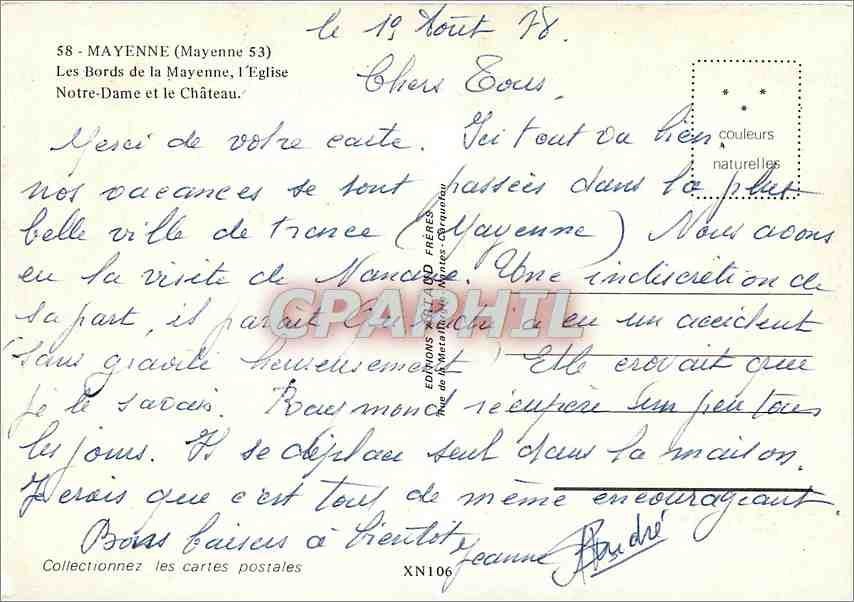 le 19 Août 78.
58 - MAYENNE (Mayenne 53)
Les Bords de la Mayenne, l'Eglise
Notre-Dame et le Château.
Chers Tous,
couleurs
naturelles
Merci de votre carte. Ici tout va bien,
nos vacances se sont passées dans la plus
belle ville de France (Mayenne) Nous avons
eu la visite de Nanane. Une indiscrétion de
sa part, il parait que a eu un accident
(sans gravité heureusement) Elle croyait que
je le savais. Raymond récupère un peu tous
les jours. Il se déplace seul dans la maison.
Je crois que c'est tout de même encourageant.
Bons baisers à bientôt
Jeanne André
EDITIONS ARTAUD FRÈRES
Rue de la Métallurgie Nantes-Carquefou
CPAPHIL
Collectionnez les cartes postales
XN106